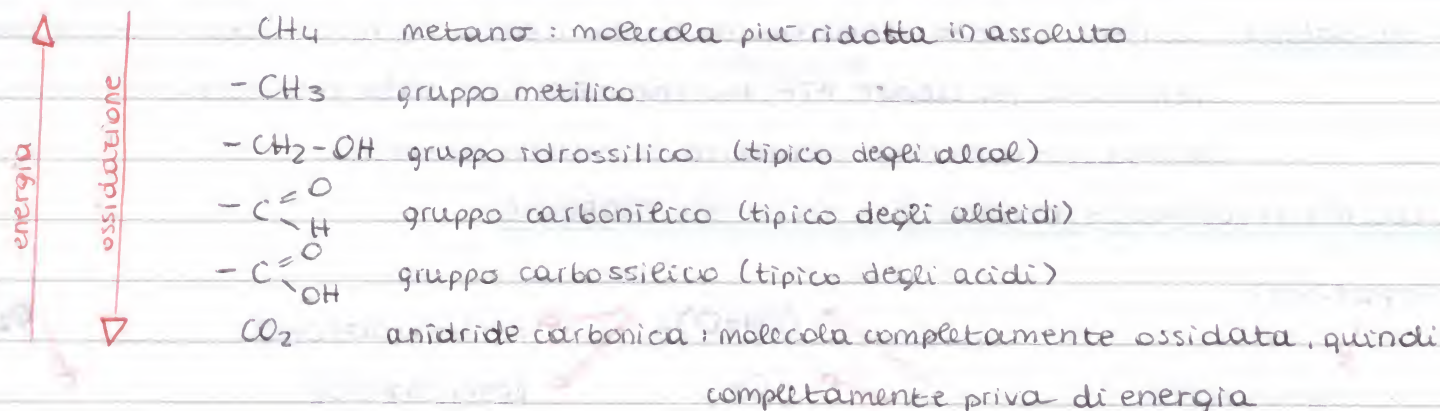 CH4 metano : molecola più ridotta in assoluto
- CH3 gruppo metilico
- CH2 - OH gruppo idrossilico (tipico degli alcol)
- C = O H gruppo carbonilico (tipico degli aldeidi)
- C = O OH gruppo carbossilico (tipico degli acidi)
CO2 anidride carbonica : molecola completamente ossidata, quindi
completamente priva di energia
energia
ossidazione